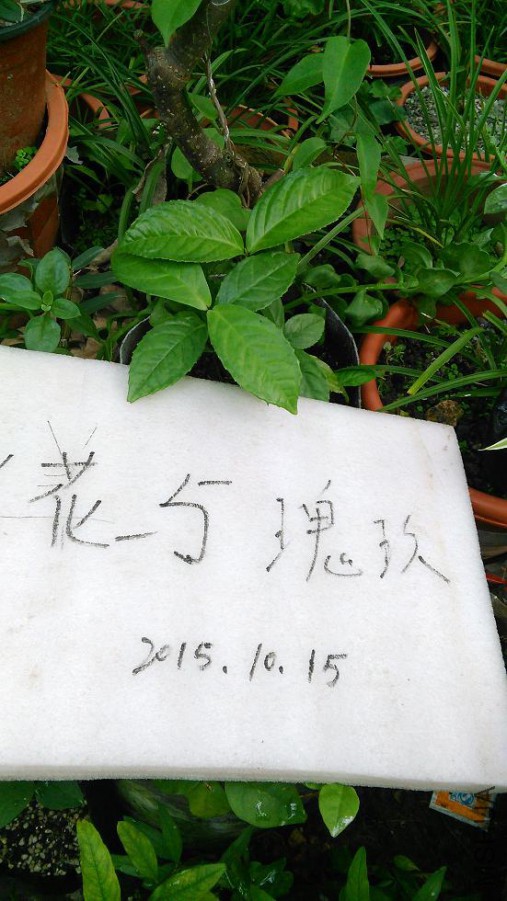 花一与 瑰玖
2015.10.15